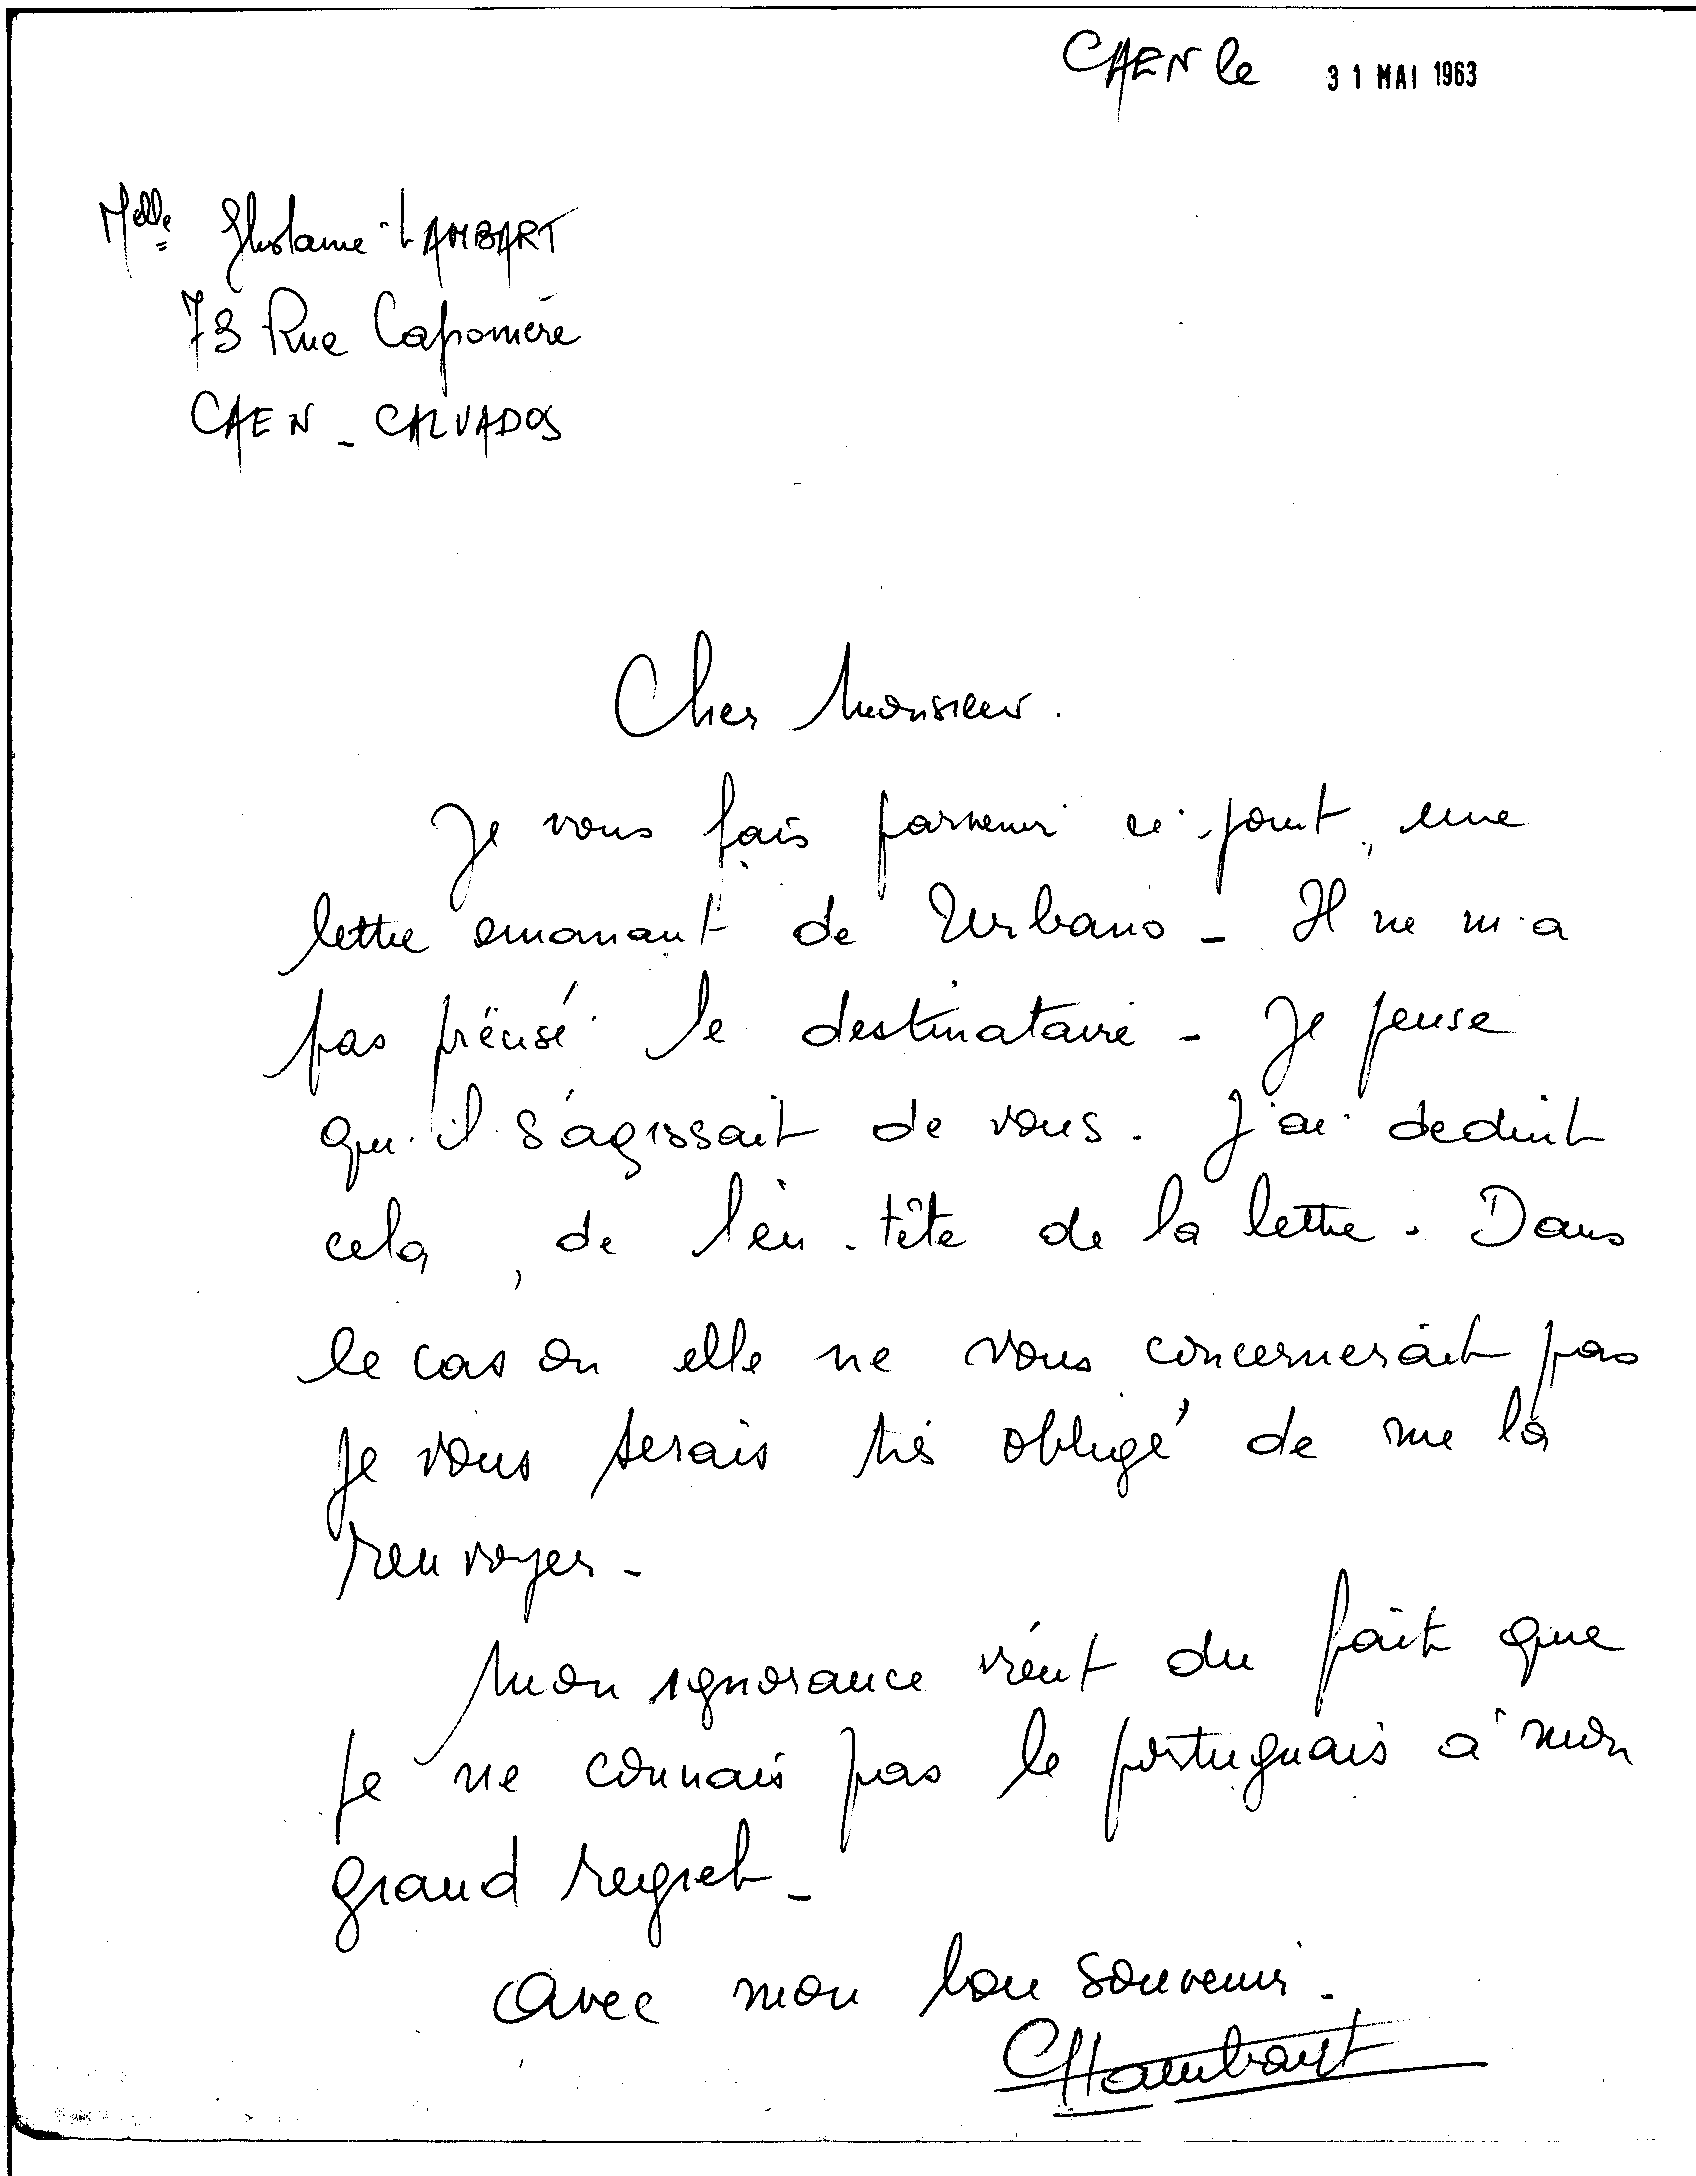 CAEN le 31 MAI 1963
Melle Ghislaine LAMBART
73 Rue Caponière
CAEN - CALVADOS
Cher Monsieur.
Je vous fais parvenir ci-joint, une
lettre emanant de Urbano - Il ne m'a
pas précisé le destinataire - Je pense
qu'il s'agissait de vous. J'ai deduit
cela, de l'en-tête de la lettre. Dans
le cas ou elle ne vous concernerait pas
je vous serais très obligé de me la
renvoyer -
Mon ignorance vient du fait que
je ne connais pas le portuguais à mon
grand regret -
Avec mon bon souvenir.
GLambart